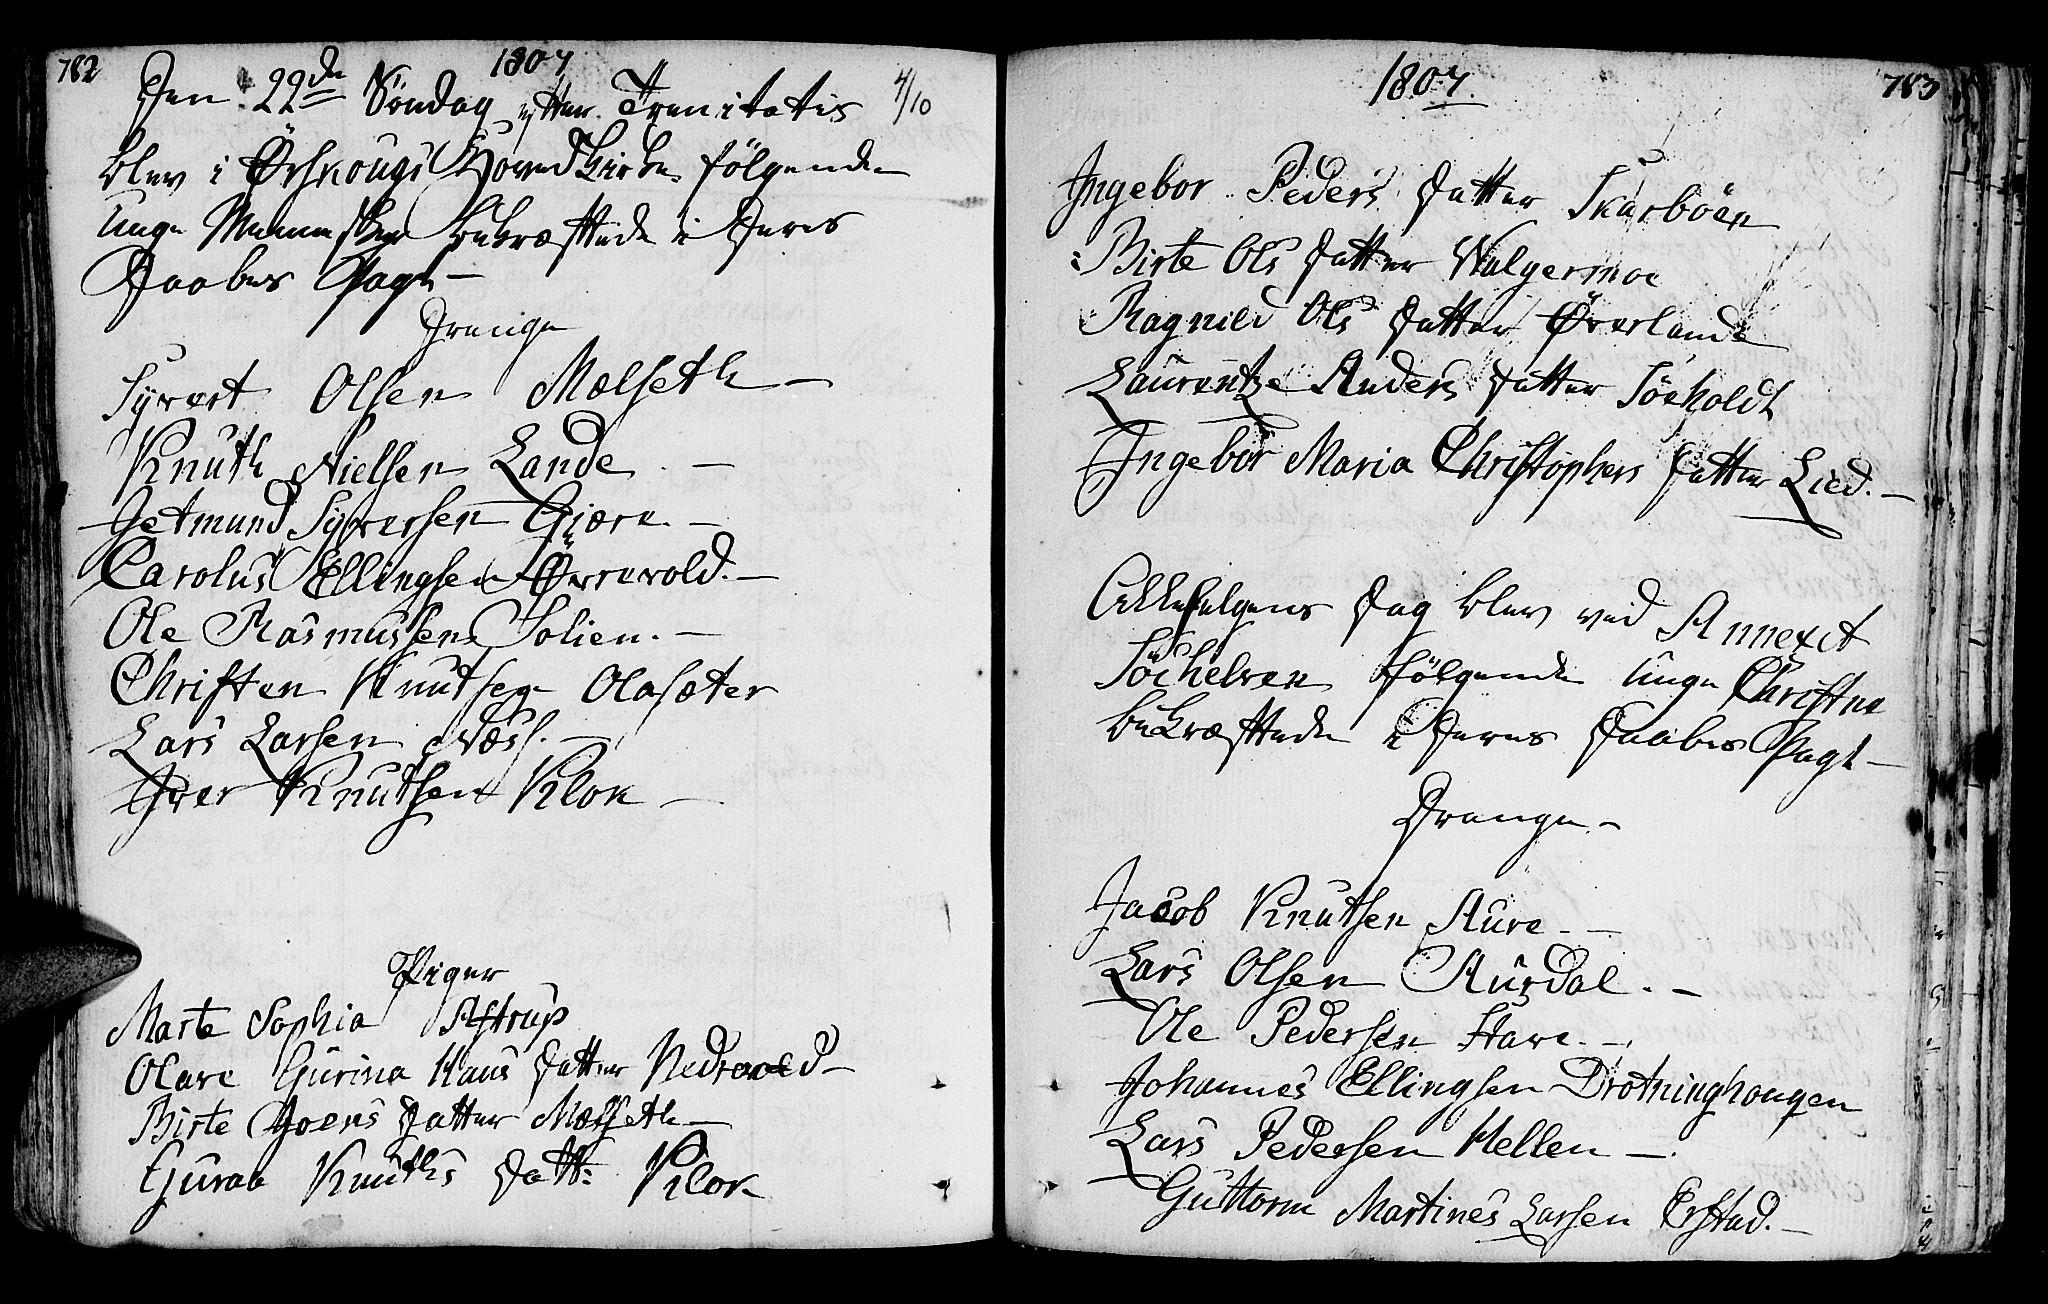 782
1807
4/10
Den 22de Söndag efter Trenitatis
blev i Örskougs Hoved Kirke følgende
unge Mennesker bekræftede i Deres
Daabes Pagt —
Drenge
Syvert Olsen Mælseth —
Knuth Nielsen Lande. —
Getmund Syversen Giære. —
Carolus Ellingsen Øvrevold. —
Ole Rasmussen Solien. —
Christen Knutsen Olasæter
Lars Larsen Næss. —
Iver Knutsen Klok —
Piger
Marte Sophia Astrup
Olave Gurina Hans Datter Nedrevold —
Birte Joens Datter Mælseth —
Gurae Knuths Datt: Klok
1807.
783
Ingebor Peders Datter Skarböen
Birte Ols Datter Walgermoe
Ragnild Ols Datter Øverlande
Laurentze Anders Datter Söeholdt
Ingebor Maria Christophers Datter Lied. —
Dag blev ved Annexet
Söchelven følgende unge Christne
bekræftede i Deres Daabes Pagt —
Drenge —
Jacob Knutsen Aure. —
Lars Olsen Aursdal. —
Ole Pedersen Hare. —
Johannes Ellingsen Drotninghougen
Lars Pedersen Hellen —
Guttorm Martines Larsen Erstad. —